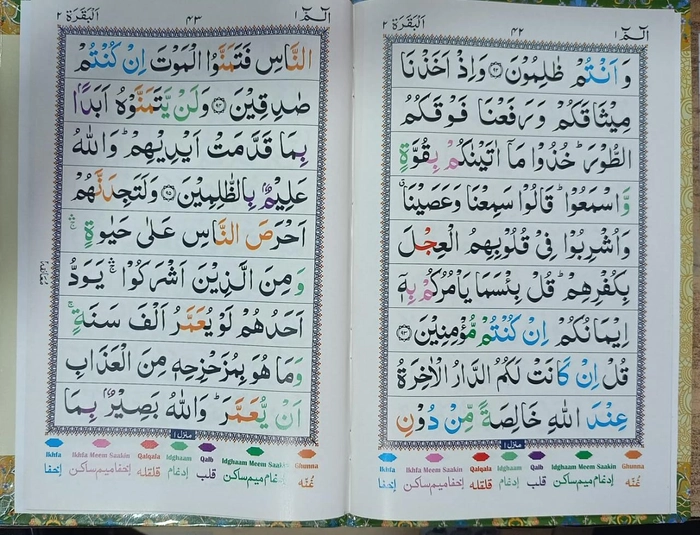 الٓمّٓ ١
٤٢
اَلْبَقَرَة ٢
وَ اَنْتُمْ ظٰلِمُوْنَ ﴿٩٢﴾ وَ اِذْ اَخَذْنَا
مِيْثَاقَكُمْ وَ رَفَعْنَا فَوْقَكُمُ
الطُّوْرَ ؕ خُذُوْا مَاۤ اٰتَيْنٰكُمْ بِقُوَّةٍ
وَّ اسْمَعُوْا ؕ قَالُوْا سَمِعْنَا وَ عَصَيْنَا ۗ
وَ اُشْرِبُوْا فِيْ قُلُوْبِهِمُ الْعِجْلَ
بِكُفْرِهِمْ ؕ قُلْ بِئْسَمَا يَاْمُرُكُمْ بِهٖۤ
اِيْمَانُكُمْ اِنْ كُنْتُمْ مُّؤْمِنِيْنَ ﴿٩٣﴾
قُلْ اِنْ كَانَتْ لَكُمُ الدَّارُ الْاٰخِرَةُ
عِنْدَ اللّٰهِ خَالِصَةً مِّنْ دُوْنِ
منزل ١
Ikhfa Ikhfa Meem Saakin Qalqala Idghaam Qalb Idghaam Meem Saakin Ghunna
اِخفا اِخفا میم ساکن قلقلہ اِدغام قلب اِدغام میم ساکن غُنّہ
الٓمّٓ ١
٤٣
اَلْبَقَرَة ٢
النَّاسِ فَتَمَنَّوُا الْمَوْتَ اِنْ كُنْتُمْ
صٰدِقِيْنَ ﴿٩٤﴾ وَ لَنْ يَّتَمَنَّوْهُ اَبَدًۢا
بِمَا قَدَّمَتْ اَيْدِيْهِمْ ؕ وَ اللّٰهُ
عَلِيْمٌۢ بِالظّٰلِمِيْنَ ﴿٩٥﴾ وَ لَتَجِدَنَّهُمْ
اَحْرَصَ النَّاسِ عَلٰى حَيٰوةٍ ۛۚ
وَ مِنَ الَّذِيْنَ اَشْرَكُوْا ۛۚ يَوَدُّ
اَحَدُهُمْ لَوْ يُعَمَّرُ اَلْفَ سَنَةٍ ۚ
وَ مَا هُوَ بِمُزَحْزِحِهٖ مِنَ الْعَذَابِ
اَنْ يُّعَمَّرَ ؕ وَ اللّٰهُ بَصِيْرٌۢ بِمَا
منزل ١
Ikhfa Ikhfa Meem Saakin Qalqala Idghaam Qalb Idghaam Meem Saakin Ghunna
اِخفا اِخفا میم ساکن قلقلہ اِدغام قلب اِدغام میم ساکن غُنّہ